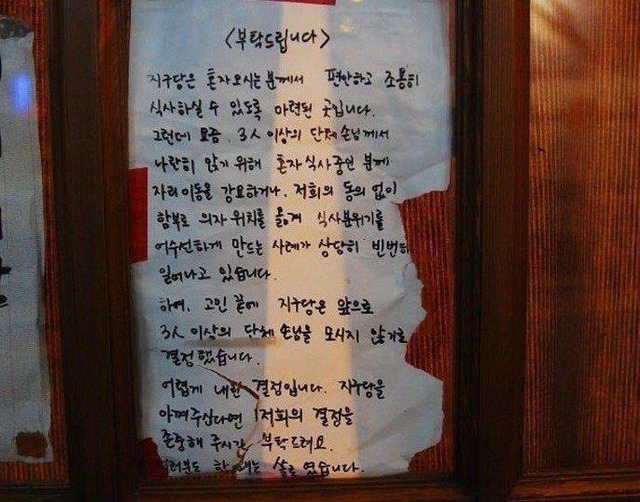 <부탁드립니다>
지구당은 혼자 오시는 분께서 편안하고 조용히
식사하실 수 있도록 마련된 곳입니다.
그런데 요즘, 3人 이상의 단체 손님께서
나란히 앉기 위해 혼자 식사중인 분께
자리 이동을 강요하거나, 저희의 동의 없이
함부로 의자 위치를 옮겨 식사분위기를
어수선하게 만드는 사례가 상당히 빈번히
일어나고 있습니다.
하여, 고민 끝에 지구당은 앞으로
3人 이상의 단체 손님을 모시지 않기로
결정했습니다.
어렵게 내린 결정입니다. 지구당을
아껴주신다면 저희의 결정을
존중해 주시길 부탁드려요.
한 때는 였습니다.